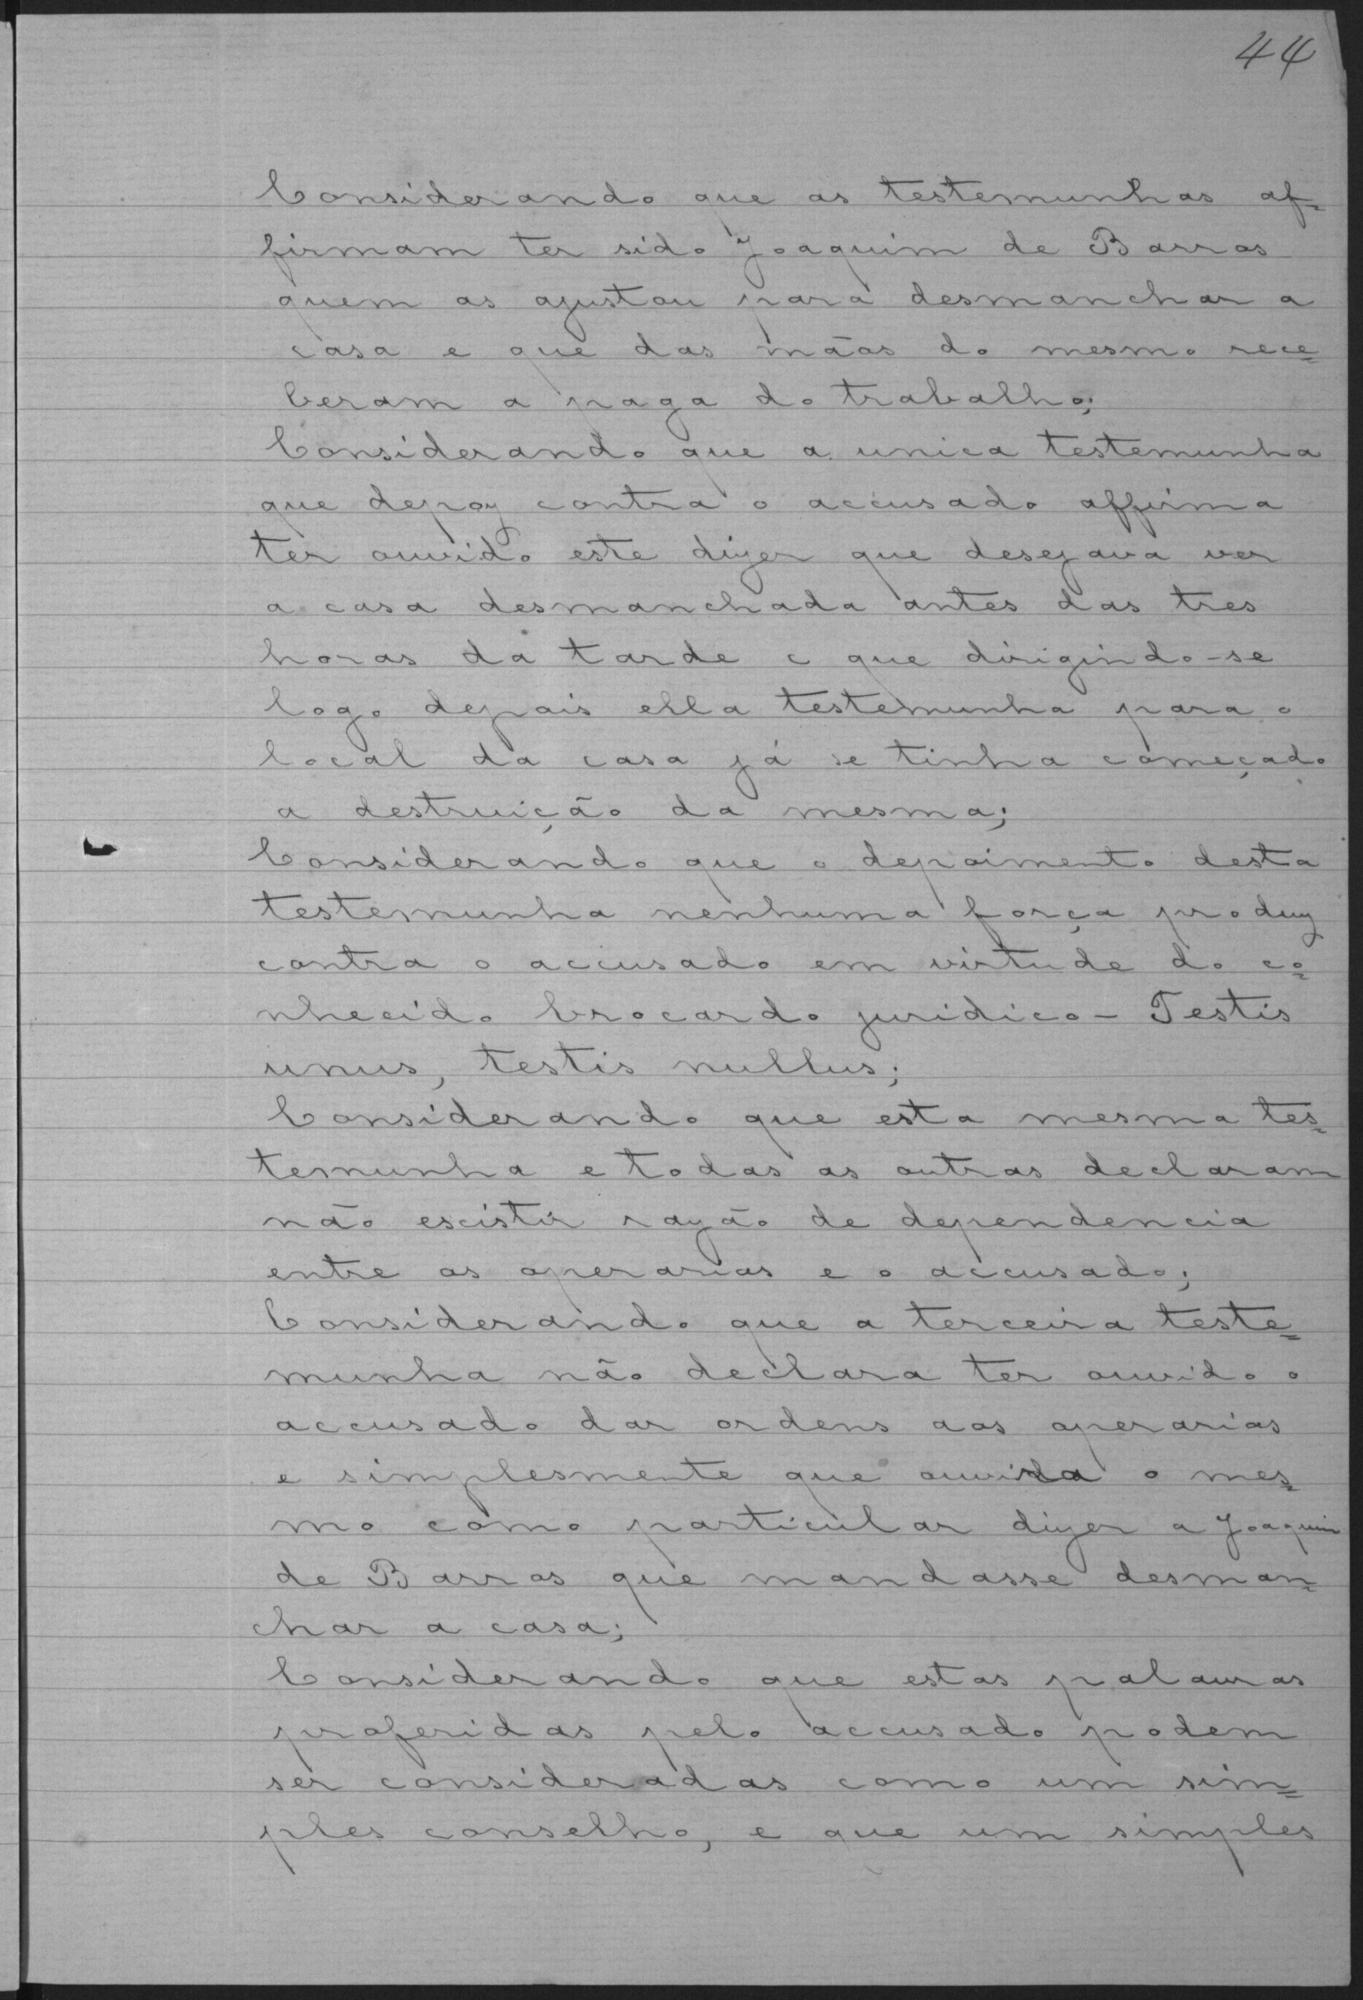 44
Considerando que as testemunhas af=
firmam ter sido Joaquim de Barros
quem as ajustou para desmanchar a
casa e que das mãos do mesmo rece=
beram a paga do trabalho;
Considerando que a unica testemunha
que depoz contra o accusado affirma
ter ouvido este dizer que desejava ver
a casa desmanchada antes das tres
horas da tarde e que dirigindo-se
logo depois ella testemunha para o
local da casa já se tinha começado
a destruição da mesma;
Considerando que o depoimento desta
testemunha nenhuma força produz
contra o accusado em virtude do co=
nhecido brocardo juridico - Testis
unus, testis nullus;
Considerando que esta mesma tes=
temunha e todas as outras declaram
não escistir razão de dependencia
entre os operarios e o accusado;
Considerando que a terceira teste=
munha não declara ter ouvido o
accusado dar ordens aos operarios
e simplesmente que ouvira o mes=
mo como particular dizer a Joaquim
de Barros que mandasse desman=
char a casa;
Considerando que estas palavras
proferidas pelo accusado podem
ser consideradas como um sim=
ples conselho, e que um simples